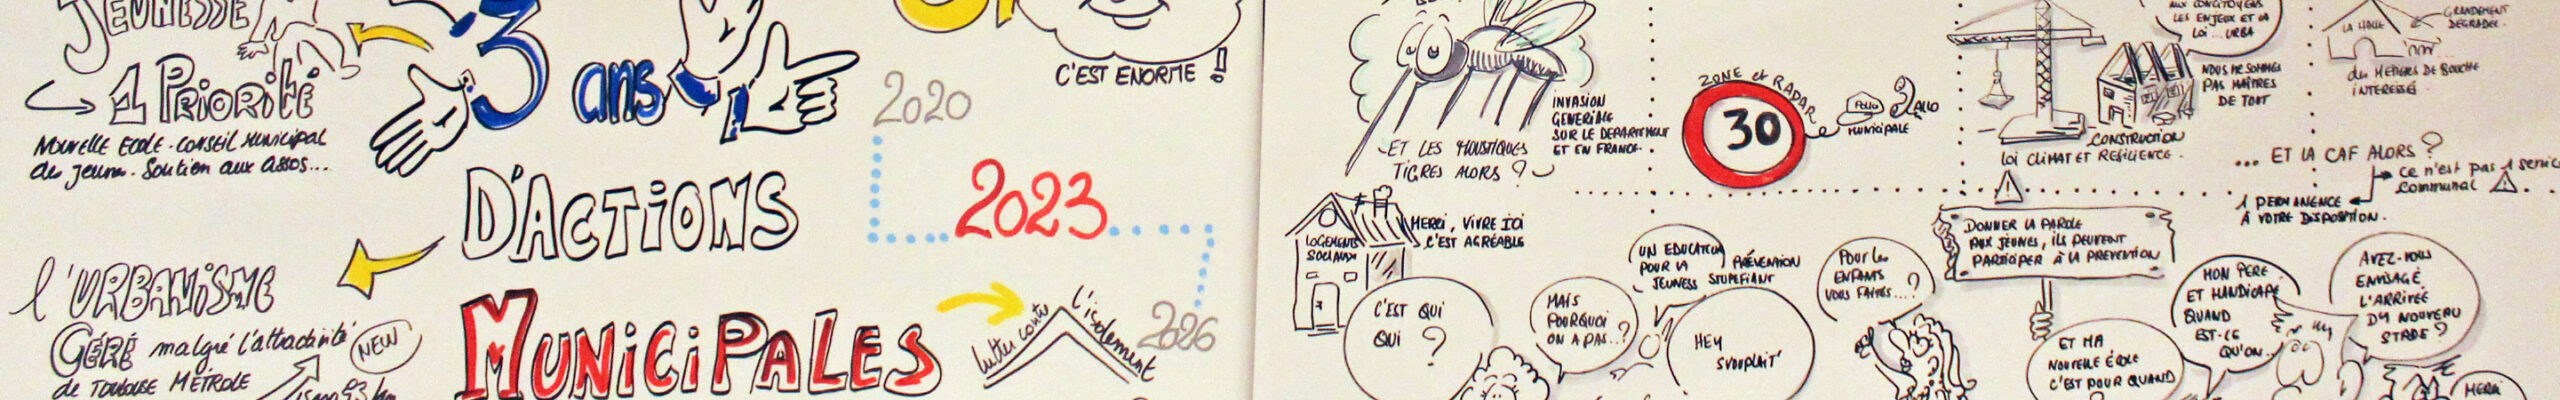 JEUNESSE
1 PRIORITÉ
NOUVELLE ECOLE. CONSEIL MUNICIPAL
des jeunes. Soution aux assos...
3 ans
D'ACTIONS
MUNICIPALES
l'URBANISME
GÉRÉ malgré l'attractivité
de TOULOUSE MÉTROLE
NEW
C'EST ENORME !
2020
2023
2026
lutter contre
l'isolement
ET LES MOUSTIQUES
TIGRES ALORS ?
INVASION
GENERALE
SUR LE DEPARTEMENT
ET EN FRANCE.
ZONE et RADAR
30
MUNICIPALE
ALLO
AUX CONCITOYENS
LES ENJEUX ET LA
LOI... URBA
NOUS NE SOMMES
PAS MAÎTRES
DE TOUT
CONSTRUCTION
LOI CLIMAT ET RESILIENCE.
LA HALLE
GRANDEMENT
DEGRADEE.
des METIERS DE BOUCHE
INTERESSÉ
... ET LA CAF ALORS ?
CE n'est pas 1 service
communal
1 PERMANENCE
À VOTRE DISPOSITION.
LOGEMENTS
SOCIAUX
MERCI, VIVRE ICI
C'EST AGRÉABLE
C'EST QUI
QUI ?
MAIS
POURQUOI
ON A PAS..?
UN EDUCATEUR
POUR LA
JEUNESS
PRÉVENTION
STUPEFIANT
HEY
SVOUPLAIT'
POUR les
ENFANTS
VOUS FAITES...?
DONNER LA PAROLE
AUX JEUNES, ILS PEUVENT
PARTICIPER À LA PREVENTION
ET MA
NOUVELLE ÉCOLE
C'EST POUR QUAND
MON PERE
ET HANDICAPÉ
QUAND
EST-CE
QU'ON..
AVEZ-VOUS
ENVISAGÉ
L'ARRIVÉE
DU NOUVEAU
STADE ?
MERCI